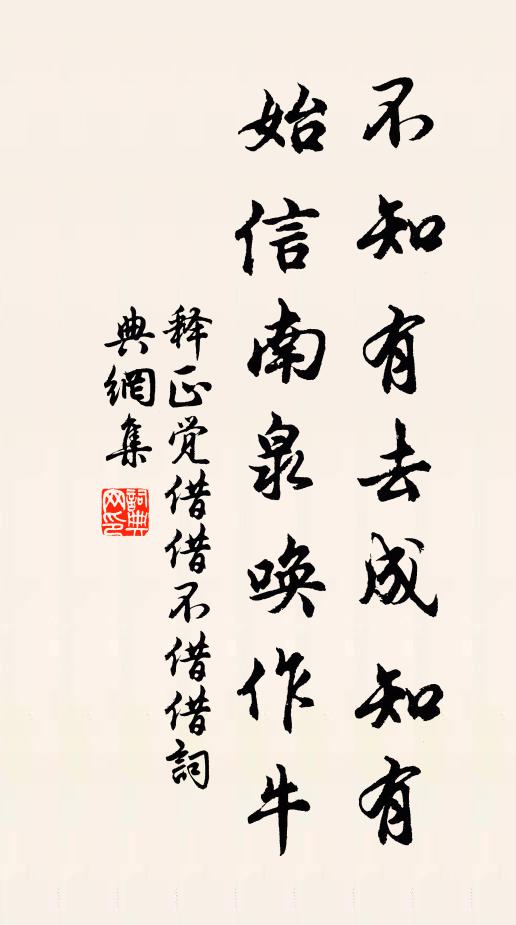 不知有去成知有
始信南泉喚作牛
释正觉借借不借借詞
典網集
詞典
网印